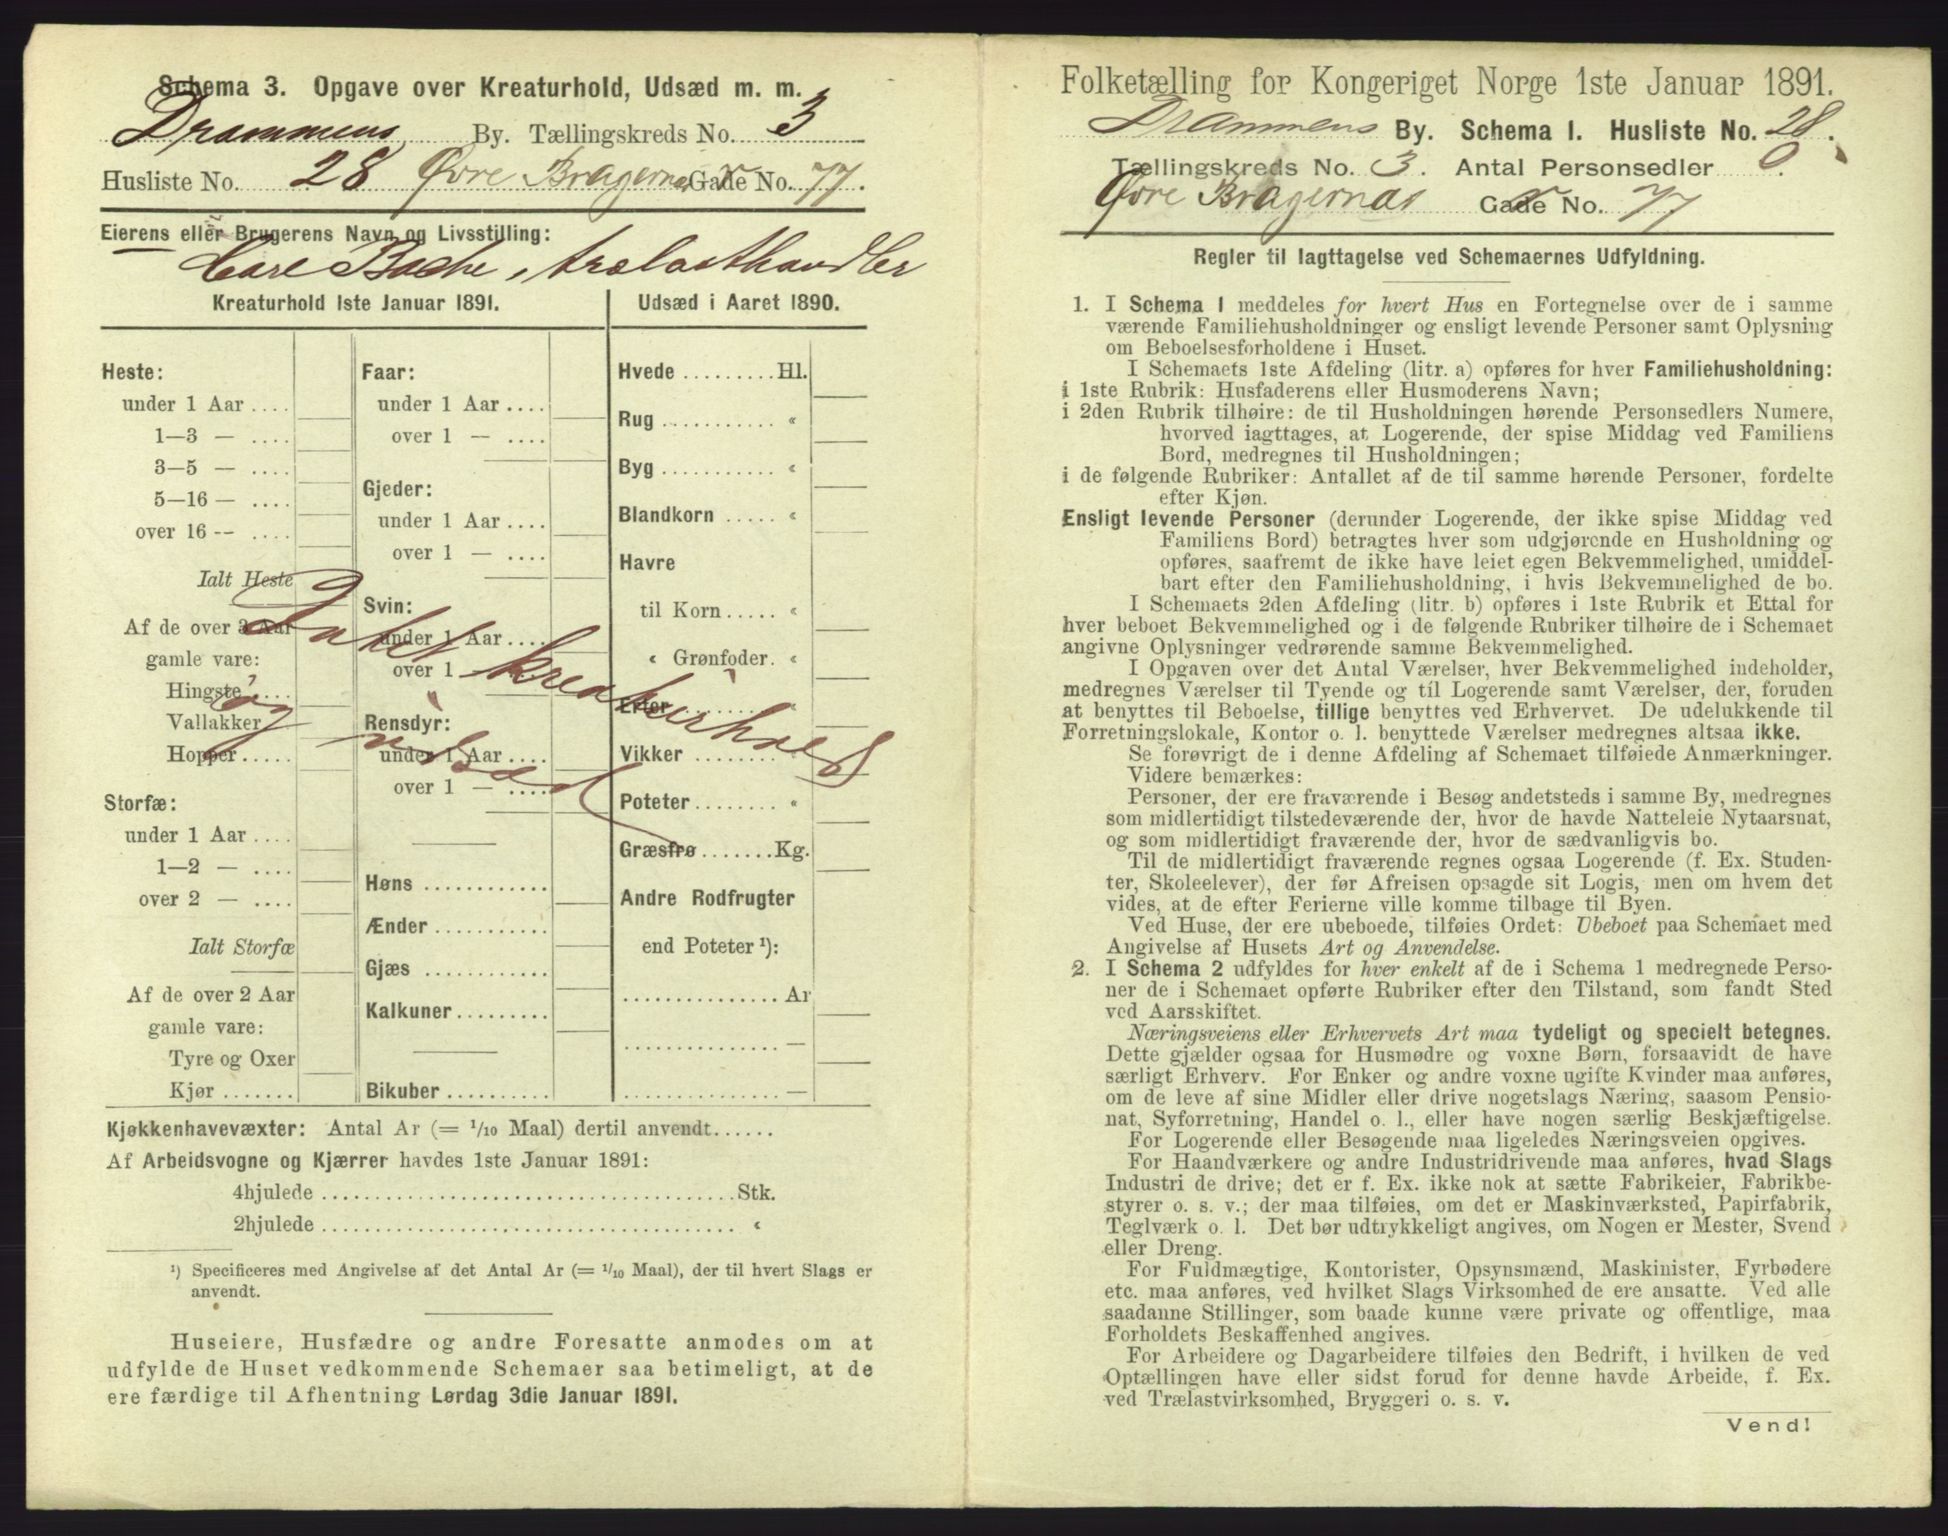 Schema 3. Opgave over Kreaturhold, Udsæd m. m.
Drammens By. Tællingskreds No. 3
Husliste No. 28 Øvre Bragernæs Gade No. 77.
Eierens eller Brugerens Navn og Livsstilling:
Carl Bache, trælasthandler
Kreaturhold 1ste Januar 1891.
Heste:
under 1 Aar ....
1—3 — ....
3—5 — ....
5—16 — ....
over 16 -- ....
Ialt Heste
Af de over 3 Aar
gamle vare:
Hingste ....
Vallakker
Hopper .....
Storfæ:
under 1 Aar ....
1—2 — ....
over 2 — ....
Ialt Storfæ
Af de over 2 Aar
gamle vare:
Tyre og Oxer
Kjør .......
Faar:
under 1 Aar ....
over 1 — ....
Gjeder:
under 1 Aar ....
over 1 — ....
Svin:
under 1 Aar ....
over 1
Rensdyr:
under 1 Aar ....
over 1 — ....
Høns ............
Ænder ...........
Gjæs ............
Kalkuner .........
Bikuber ..........
Udsæd i Aaret 1890.
Hvede ......... Hl.
Rug ........... «
Byg ........... «
Blandkorn ..... «
Havre
til Korn ..... «
« Grønfoder. «
Erter ......... «
Vikker ........ «
Poteter ........ «
Græsfrø ....... Kg.
Andre Rodfrugter
end Poteter ¹):
............... Ar
............... —
............... —
Intet kreaturhold
og udsæd
Kjøkkenhavevæxter: Antal Ar (= 1/10 Maal) dertil anvendt......
Af Arbeidsvogne og Kjærrer havdes 1ste Januar 1891:
4hjulede ..................................... Stk.
2hjulede ..................................... «
¹) Specificeres med Angivelse af det Antal Ar (= 1/10 Maal), der til hvert Slags er
anvendt.
Huseiere, Husfædre og andre Foresatte anmodes om at
udfylde de Huset vedkommende Schemaer saa betimeligt, at de
ere færdige til Afhentning Lørdag 3die Januar 1891.
Folketælling for Kongeriget Norge 1ste Januar 1891.
Drammens By. Schema I. Husliste No. 28.
Tællingskreds No. 3. Antal Personsedler 0.
Øvre Bragernæs Gade No. 77
Regler til Iagttagelse ved Schemaernes Udfyldning.
1. I Schema I meddeles for hvert Hus en Fortegnelse over de i samme
værende Familiehusholdninger og ensligt levende Personer samt Oplysning
om Beboelsesforholdene i Huset.
I Schemaets 1ste Afdeling (litr. a) opføres for hver Familiehusholdning:
i 1ste Rubrik: Husfaderens eller Husmoderens Navn;
i 2den Rubrik tilhøire: de til Husholdningen hørende Personsedlers Numere,
hvorved iagttages, at Logerende, der spise Middag ved Familiens
Bord, medregnes til Husholdningen;
i de følgende Rubriker: Antallet af de til samme hørende Personer, fordelte
efter Kjøn.
Ensligt levende Personer (derunder Logerende, der ikke spise Middag ved
Familiens Bord) betragtes hver som udgjørende en Husholdning og
opføres, saafremt de ikke have leiet egen Bekvemmelighed, umiddel-
bart efter den Familiehusholdning, i hvis Bekvemmelighed de bo.
I Schemaets 2den Afdeling (litr. b) opføres i 1ste Rubrik et Ettal for
hver beboet Bekvemmelighed og i de følgende Rubriker tilhøire de i Schemaet
angivne Oplysninger vedrørende samme Bekvemmelighed.
I Opgaven over det Antal Værelser, hver Bekvemmelighed indeholder,
medregnes Værelser til Tyende og til Logerende samt Værelser, der, foruden
at benyttes til Beboelse, tillige benyttes ved Erhvervet. De udelukkende til
Forretningslokale, Kontor o. l. benyttede Værelser medregnes altsaa ikke.
Se forøvrigt de i denne Afdeling af Schemaet tilføiede Anmærkninger.
Videre bemærkes:
Personer, der ere fraværende i Besøg andetsteds i samme By, medregnes
som midlertidigt tilstedeværende der, hvor de havde Natteleie Nytaarsnat,
og som midlertidigt fraværende der, hvor de sædvanligvis bo.
Til de midlertidigt fraværende regnes ogsaa Logerende (f. Ex. Studen-
ter, Skoleelever), der før Afreisen opsagde sit Logis, men om hvem det
vides, at de efter Ferierne ville komme tilbage til Byen.
Ved Huse, der ere ubeboede, tilføies Ordet: Ubeboet paa Schemaet med
Angivelse af Husets Art og Anvendelse.
2. I Schema 2 udfyldes for hver enkelt af de i Schema 1 medregnede Perso-
ner de i Schemaet opførte Rubriker efter den Tilstand, som fandt Sted
ved Aarsskiftet.
Næringsveiens eller Erhvervets Art maa tydeligt og specielt betegnes.
Dette gjælder ogsaa for Husmødre og voxne Børn, forsaavidt de have
særligt Erhverv. For Enker og andre voxne ugifte Kvinder maa anføres,
om de leve af sine Midler eller drive nogetslags Næring, saasom Pensio-
nat, Syforretning, Handel o. l., eller have nogen særlig Beskjæftigelse.
For Logerende eller Besøgende maa ligeledes Næringsveien opgives.
For Haandværkere og andre Industridrivende maa anføres, hvad Slags
Industri de drive; det er f. Ex. ikke nok at sætte Fabrikeier, Fabrikbe-
styrer o. s. v.; der maa tilføies, om det er Maskinværksted, Papirfabrik,
Teglværk o. l. Det bør udtrykkeligt angives, om Nogen er Mester, Svend
eller Dreng.
For Fuldmægtige, Kontorister, Opsynsmænd, Maskinister, Fyrbødere
etc. maa anføres, ved hvilket Slags Virksomhed de ere ansatte. Ved alle
saadanne Stillinger, som baade kunne være private og offentlige, maa
Forholdets Beskaffenhed angives.
For Arbeidere og Dagarbeidere tilføies den Bedrift, i hvilken de ved
Optællingen have eller sidst forud for denne havde Arbeide, f. Ex.
ved Trælastvirksomhed, Bryggeri o. s. v.
Vend!